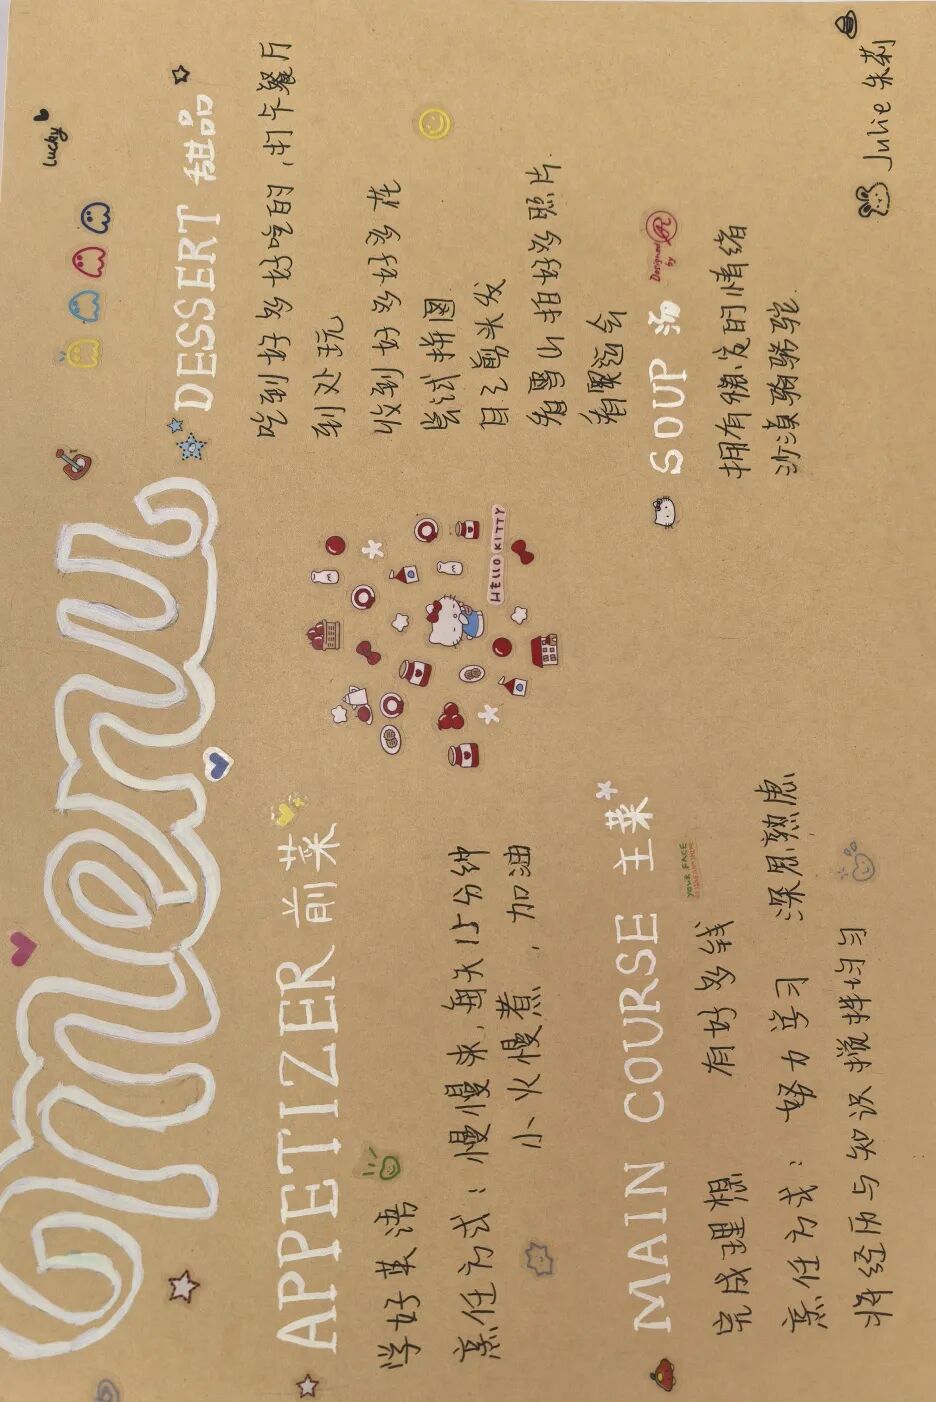 menu
Lucky
APPETIZER 前菜
学好英语
烹饪方式：慢慢来，每天15分钟
小火慢煮，加油
MAIN COURSE 主菜
YOUR FACE
完成理想 有好多钱
烹饪方式：努力学习 深思熟虑
将经历与知识搅拌均匀
HELLO KITTY
DESSERT 甜品
吃到好多好吃的，用
到处玩
收到好多好多花
尝试拼图
自己剪头发
好多照片
SOUP 汤
Designed by
拥有稳定的情绪
沙漠骆驼
Julie 朱莉